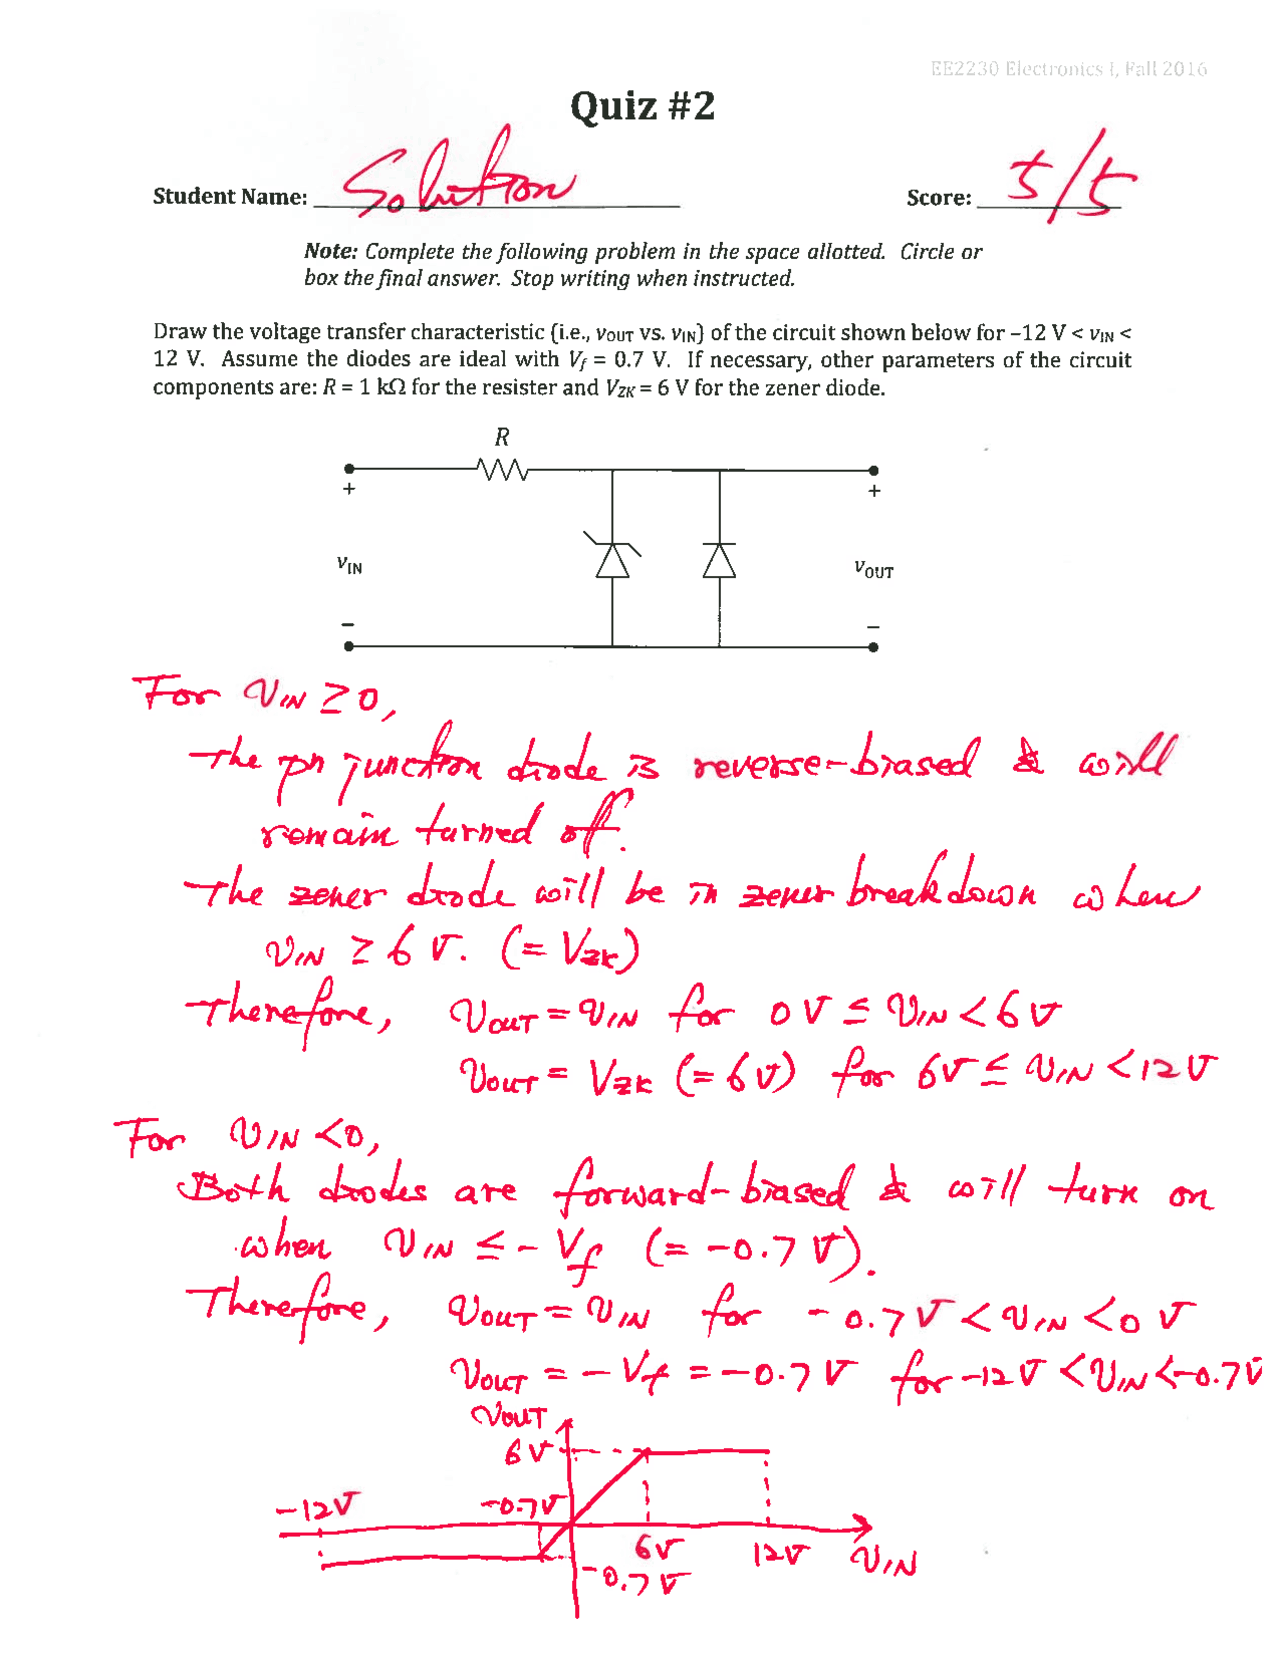 EE2230 Electronics I, Fall 2016
Quiz #2
Student Name: Solution Score: 5/5
Note: Complete the following problem in the space allotted. Circle or
box the final answer. Stop writing when instructed.
Draw the voltage transfer characteristic (i.e., vOUT vs. vIN) of the circuit shown below for –12 V < vIN <
12 V. Assume the diodes are ideal with Vf = 0.7 V. If necessary, other parameters of the circuit
components are: R = 1 kΩ for the resister and VZK = 6 V for the zener diode.
R
+ +
vIN vOUT
– –
For vIN ≥ 0,
The pn junction diode is reverse-biased & will
remain turned off.
The zener diode will be in zener breakdown when
vIN ≥ 6 V. (= VZK)
Therefore, vOUT = vIN for 0 V ≤ vIN < 6 V
vOUT = VZK (= 6 V) for 6 V ≤ vIN < 12 V
For vIN < 0,
Both diodes are forward-biased & will turn on
when vIN ≤ - Vf (= -0.7 V).
Therefore, vOUT = vIN for -0.7 V < vIN < 0 V
vOUT = - Vf = -0.7 V for -12 V < vIN < -0.7 V
vOUT
6 V
-12 V -0.7 V
6 V 12 V vIN
-0.7 V